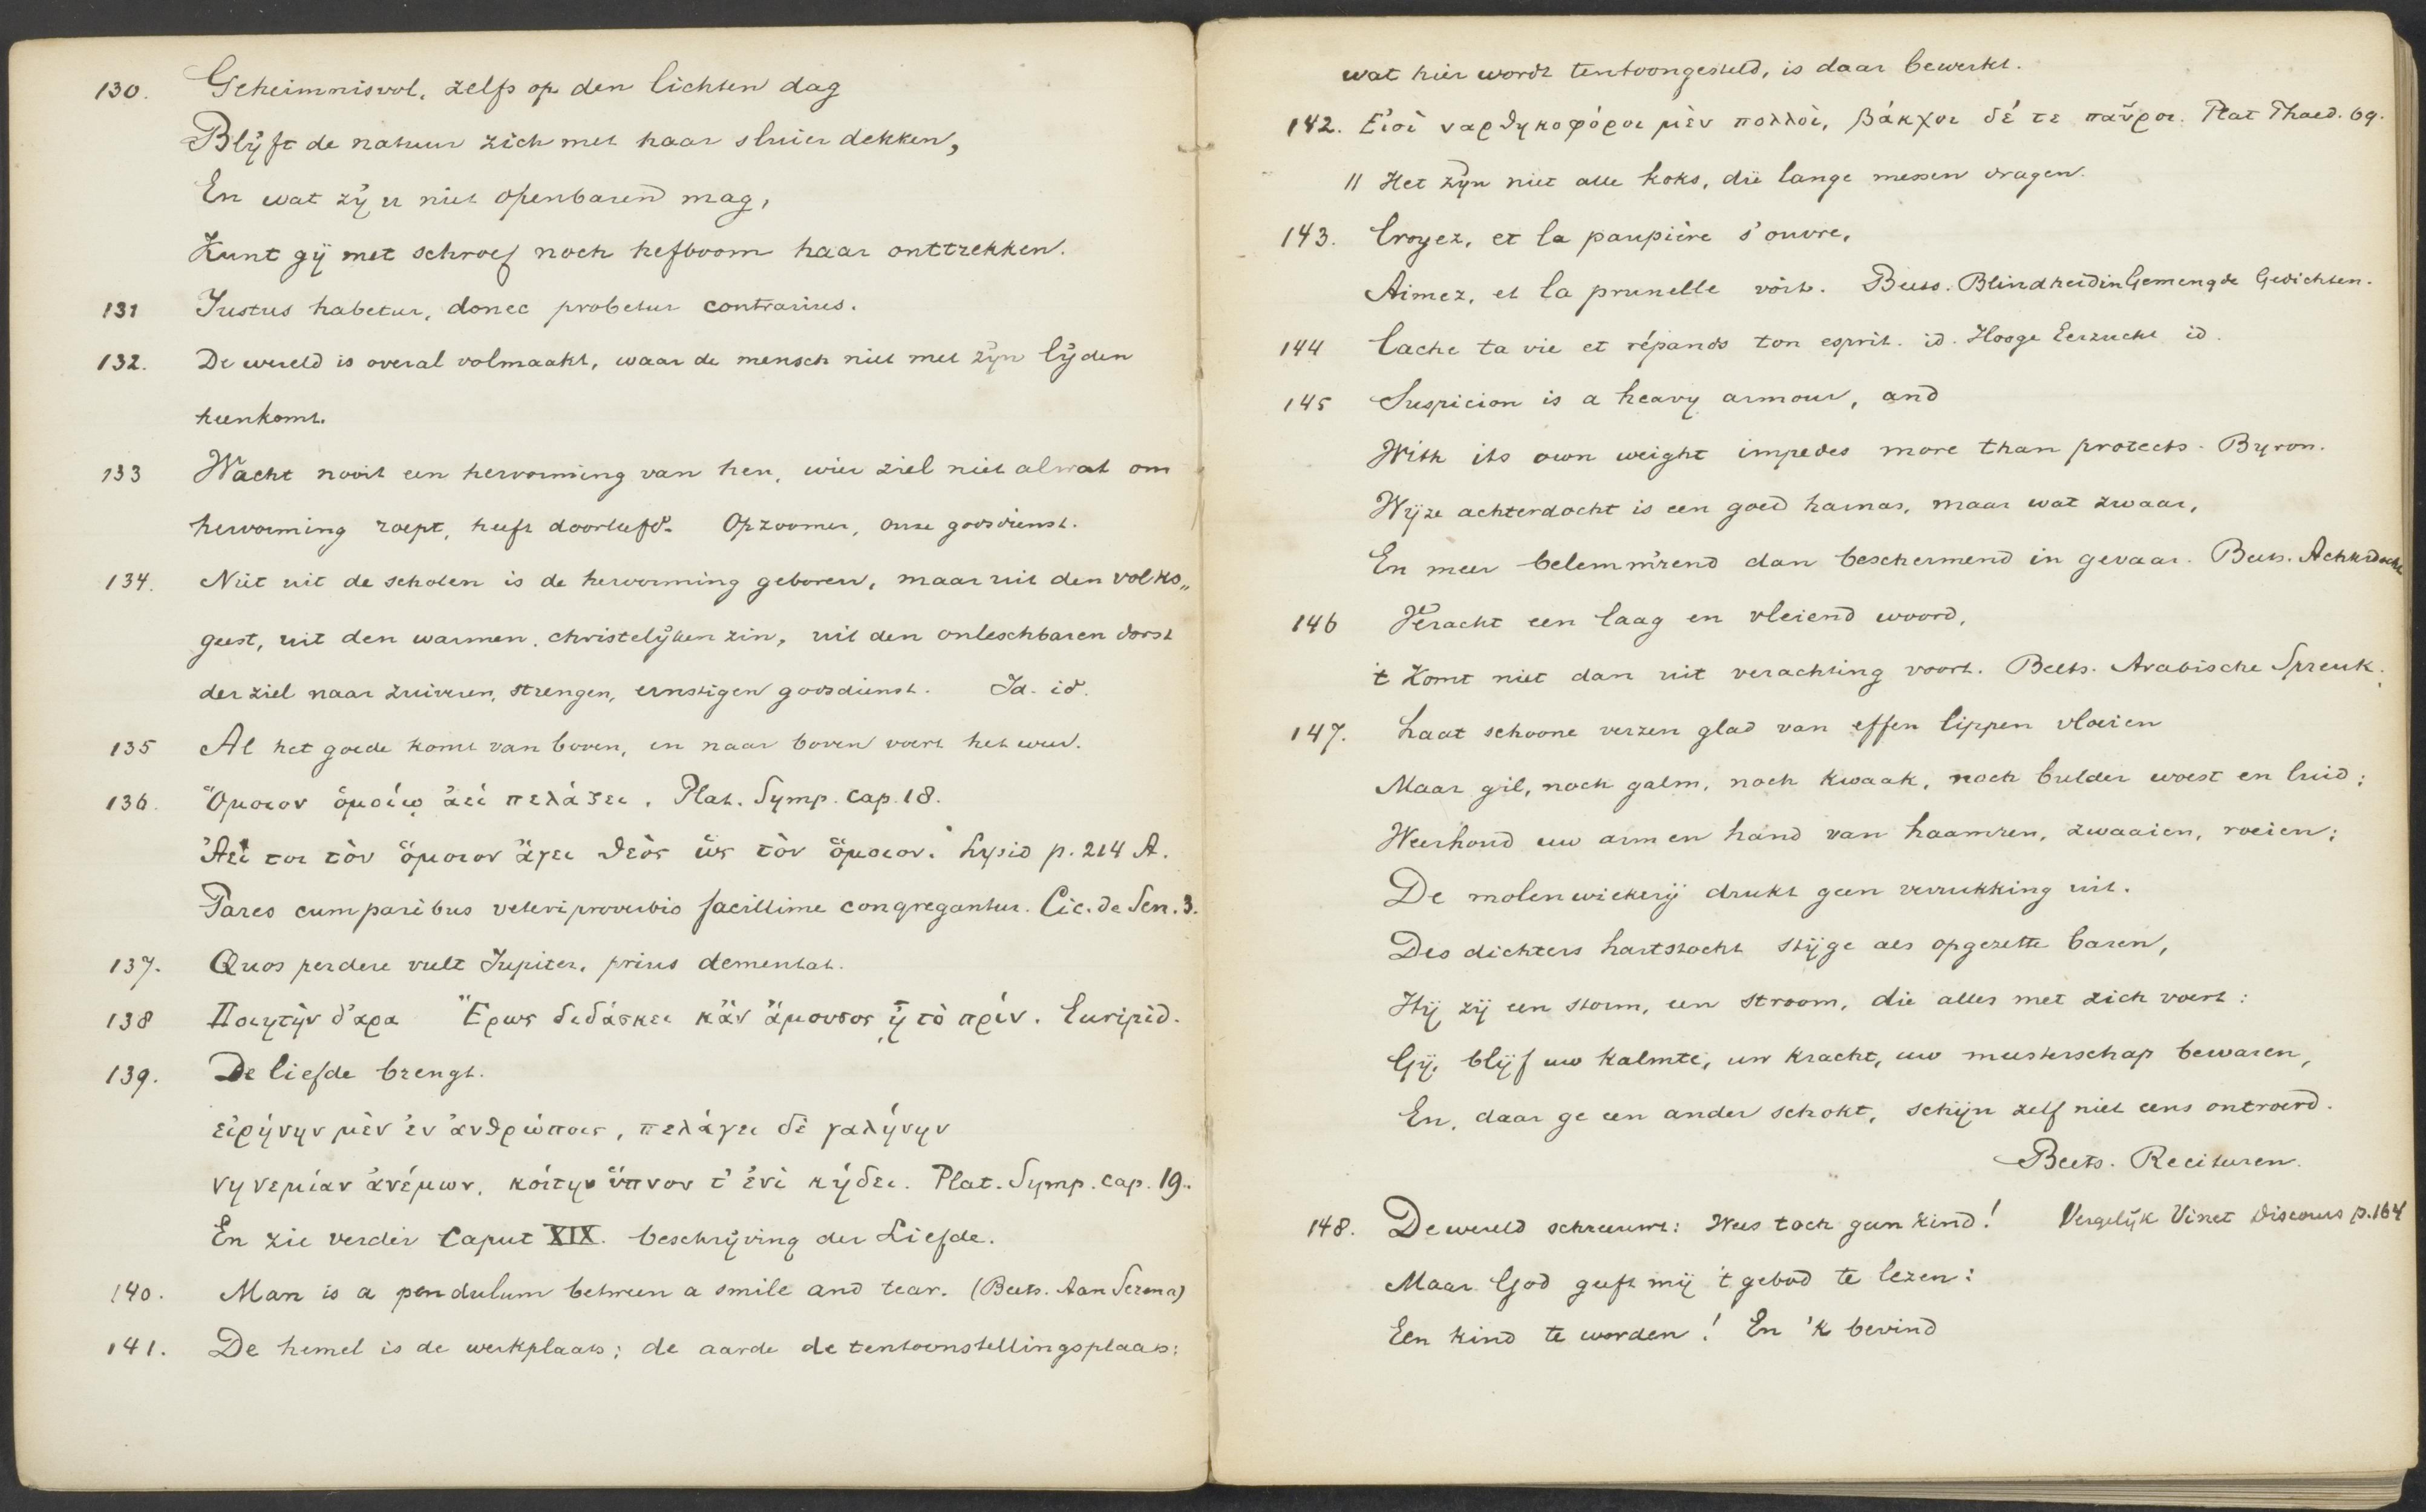 130. Geheimnisvol, zelfs op den lichten dag
Blijft de natuur zich met haar sluier dekken,
En wat zij u niet openbaren mag,
Kunt gij met schroef noch hefboom haar onttrekken.
131 Justus habetur, donec probetur contrarius.
132. De wereld is overal volmaakt, waar de mensch niet met zijn lijden
heenkomt.
133 Wacht nooit een hervorming van hen, wier ziel niet al wat om
hervorming roept, heeft doorleefd. Opzoomer, onze godsdienst.
134. Niet uit de scholen is de hervorming geboren, maar uit den volks„
geest, uit den warmen, christelijken zin, uit den onleschbaren dorst
der ziel naar zuiveren, strengen, ernstigen godsdienst. Id. id.
135 Al het goede komt van boven, en naar boven voert het weer.
136. Ὅμοιον ὁμοίῳ ἀεί πελάζει. Plat. Symp. Cap. 18.
Ἀεί τοι τὸν ὅμοιον ἄγει θεὸς ὡς τὸν ὅμοιον. Lysid p. 214 A.
Pares cum paribus veteri proverbio facillime congregantur. Cic. de Sen. 3.
137. Quos perdere vult Jupiter, prius dementat.
138 Ποιητὴν δ'ἄρα Ἔρως διδάσκει κἂν ἄμουσος ᾖ τὸ πρίν. Euripid.
139. De liefde brengt.
εἰρήνην μὲν ἐν ἀνθρώποις, πελάγει δὲ γαλήνην
νηνεμίαν ἀνέμων, κοίτην ὕπνον τ' ἐνὶ κήδει. Plat. Symp. cap. 19.
En zie verder Caput XIX. beschrijving der Liefde.
140. Man is a pendulum between a smile and tear. (Beets. Aan Serena)
141. De hemel is de werkplaats; de aarde de tentoonstellingsplaats;
wat hier wordt tentoongesteld, is daar bewerkt.
142. Εἰσὶ ναρθηκοφόροι μὲν πολλοὶ, βάκχοι δέ τε παῦροι. Plat Phaed. 69.
11 Het zijn niet alle koks, die lange messen dragen.
143. Croyez, et la paupière s'ouvre,
Aimez, et la prunelle voit. Beets. Blindheid in Gemengde Gedichten.
144 Cache ta vie et répands ton esprit. id. Hooge Eerzucht id.
145 Suspicion is a heavy armour, and
With its own weight impedes more than protects. Byron.
Wijze achterdocht is een goed harnas, maar wat zwaar,
En meer belemm'rend dan beschermend in gevaar. Beets. Achterdocht
146 Veracht een laag en vleiend woord,
't Komt niet dan uit verachting voort. Beets. Arabische Spreuk.
147. Laat schoone verzen glad van effen lippen vloeien
Maar gil, noch galm, noch kwaak, noch bulder woest en luid;
Weerhoud uw arm en hand van haamren, zwaaien, roeien;
De molenwiekerij drukt geen verrukking uit.
Des dichters hartstocht stijge als opgezette baren,
Hij zij een storm, een stroom, die alles met zich voert:
Gij, blijf uw kalmte, uw kracht, uw meesterschap bewaren,
En, daar ge een ander schokt, schijn zelf niet eens ontroerd.
Beets. Reciteeren.
148. De wereld schreeuwt: Wees toch geen kind! Vergelijk Vinet Discours p. 164
Maar God geeft mij 't gebod te lezen:
Een kind te worden! En 'k bevind